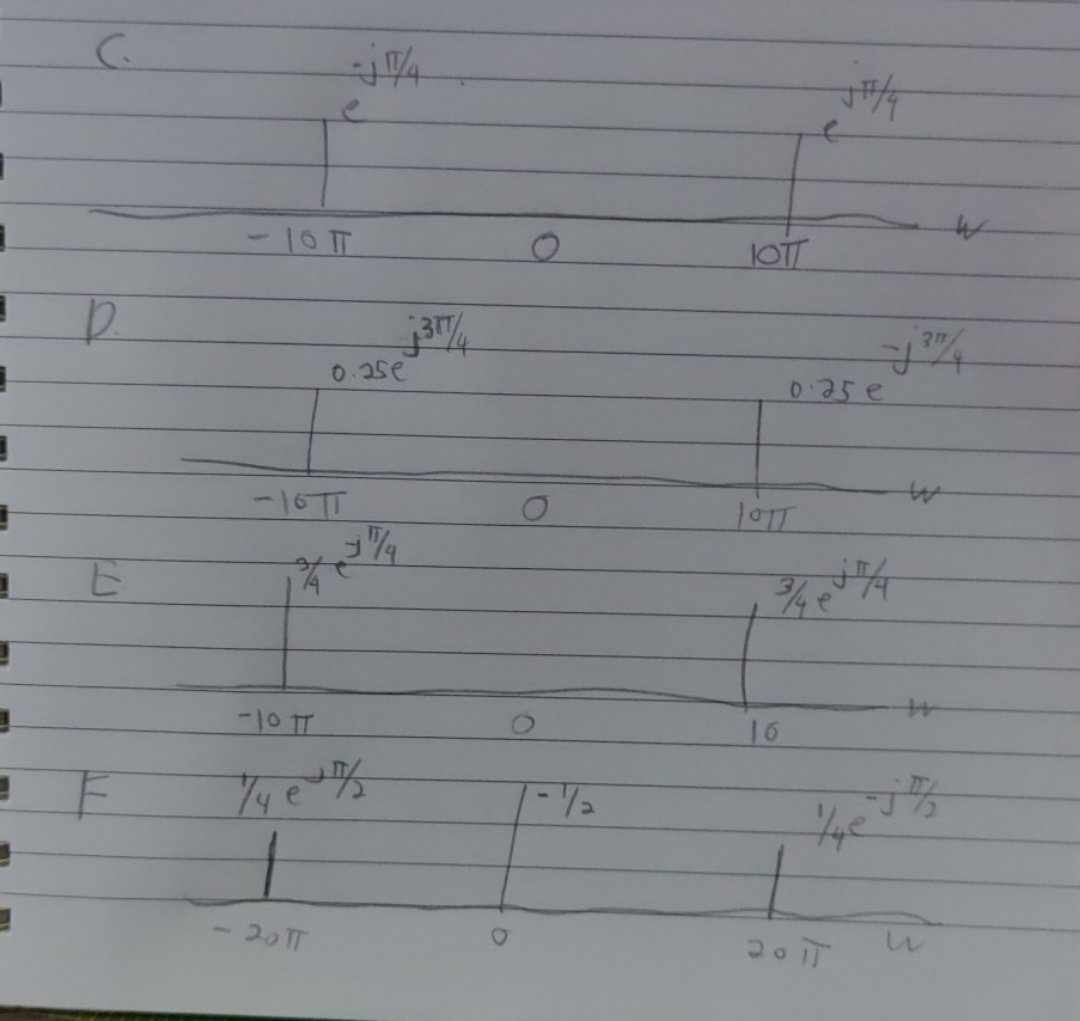 C.
e^-jπ/4 e^jπ/4
-10π 0 10π w
D.
0.25e^j3π/4 0.25e^-j3π/4
-10π 0 10π w
E
3/4 e^-jπ/4 3/4 e^jπ/4
-10π 0 10 w
F
1/4 e^jπ/2 -1/2 1/4 e^-jπ/2
-20π 0 20π w